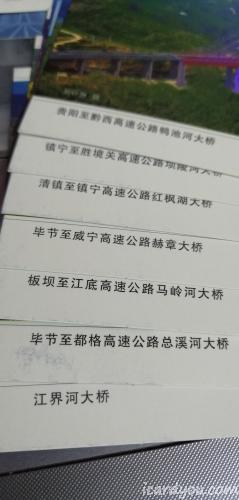 贵阳至黔西高速公路鸭池河大桥
镇宁至胜境关高速公路坝陵河大桥
清镇至镇宁高速公路红枫湖大桥
毕节至威宁高速公路赫章大桥
板坝至江底高速公路马岭河大桥
毕节至都格高速公路总溪河大桥
江界河大桥
icardyou.com